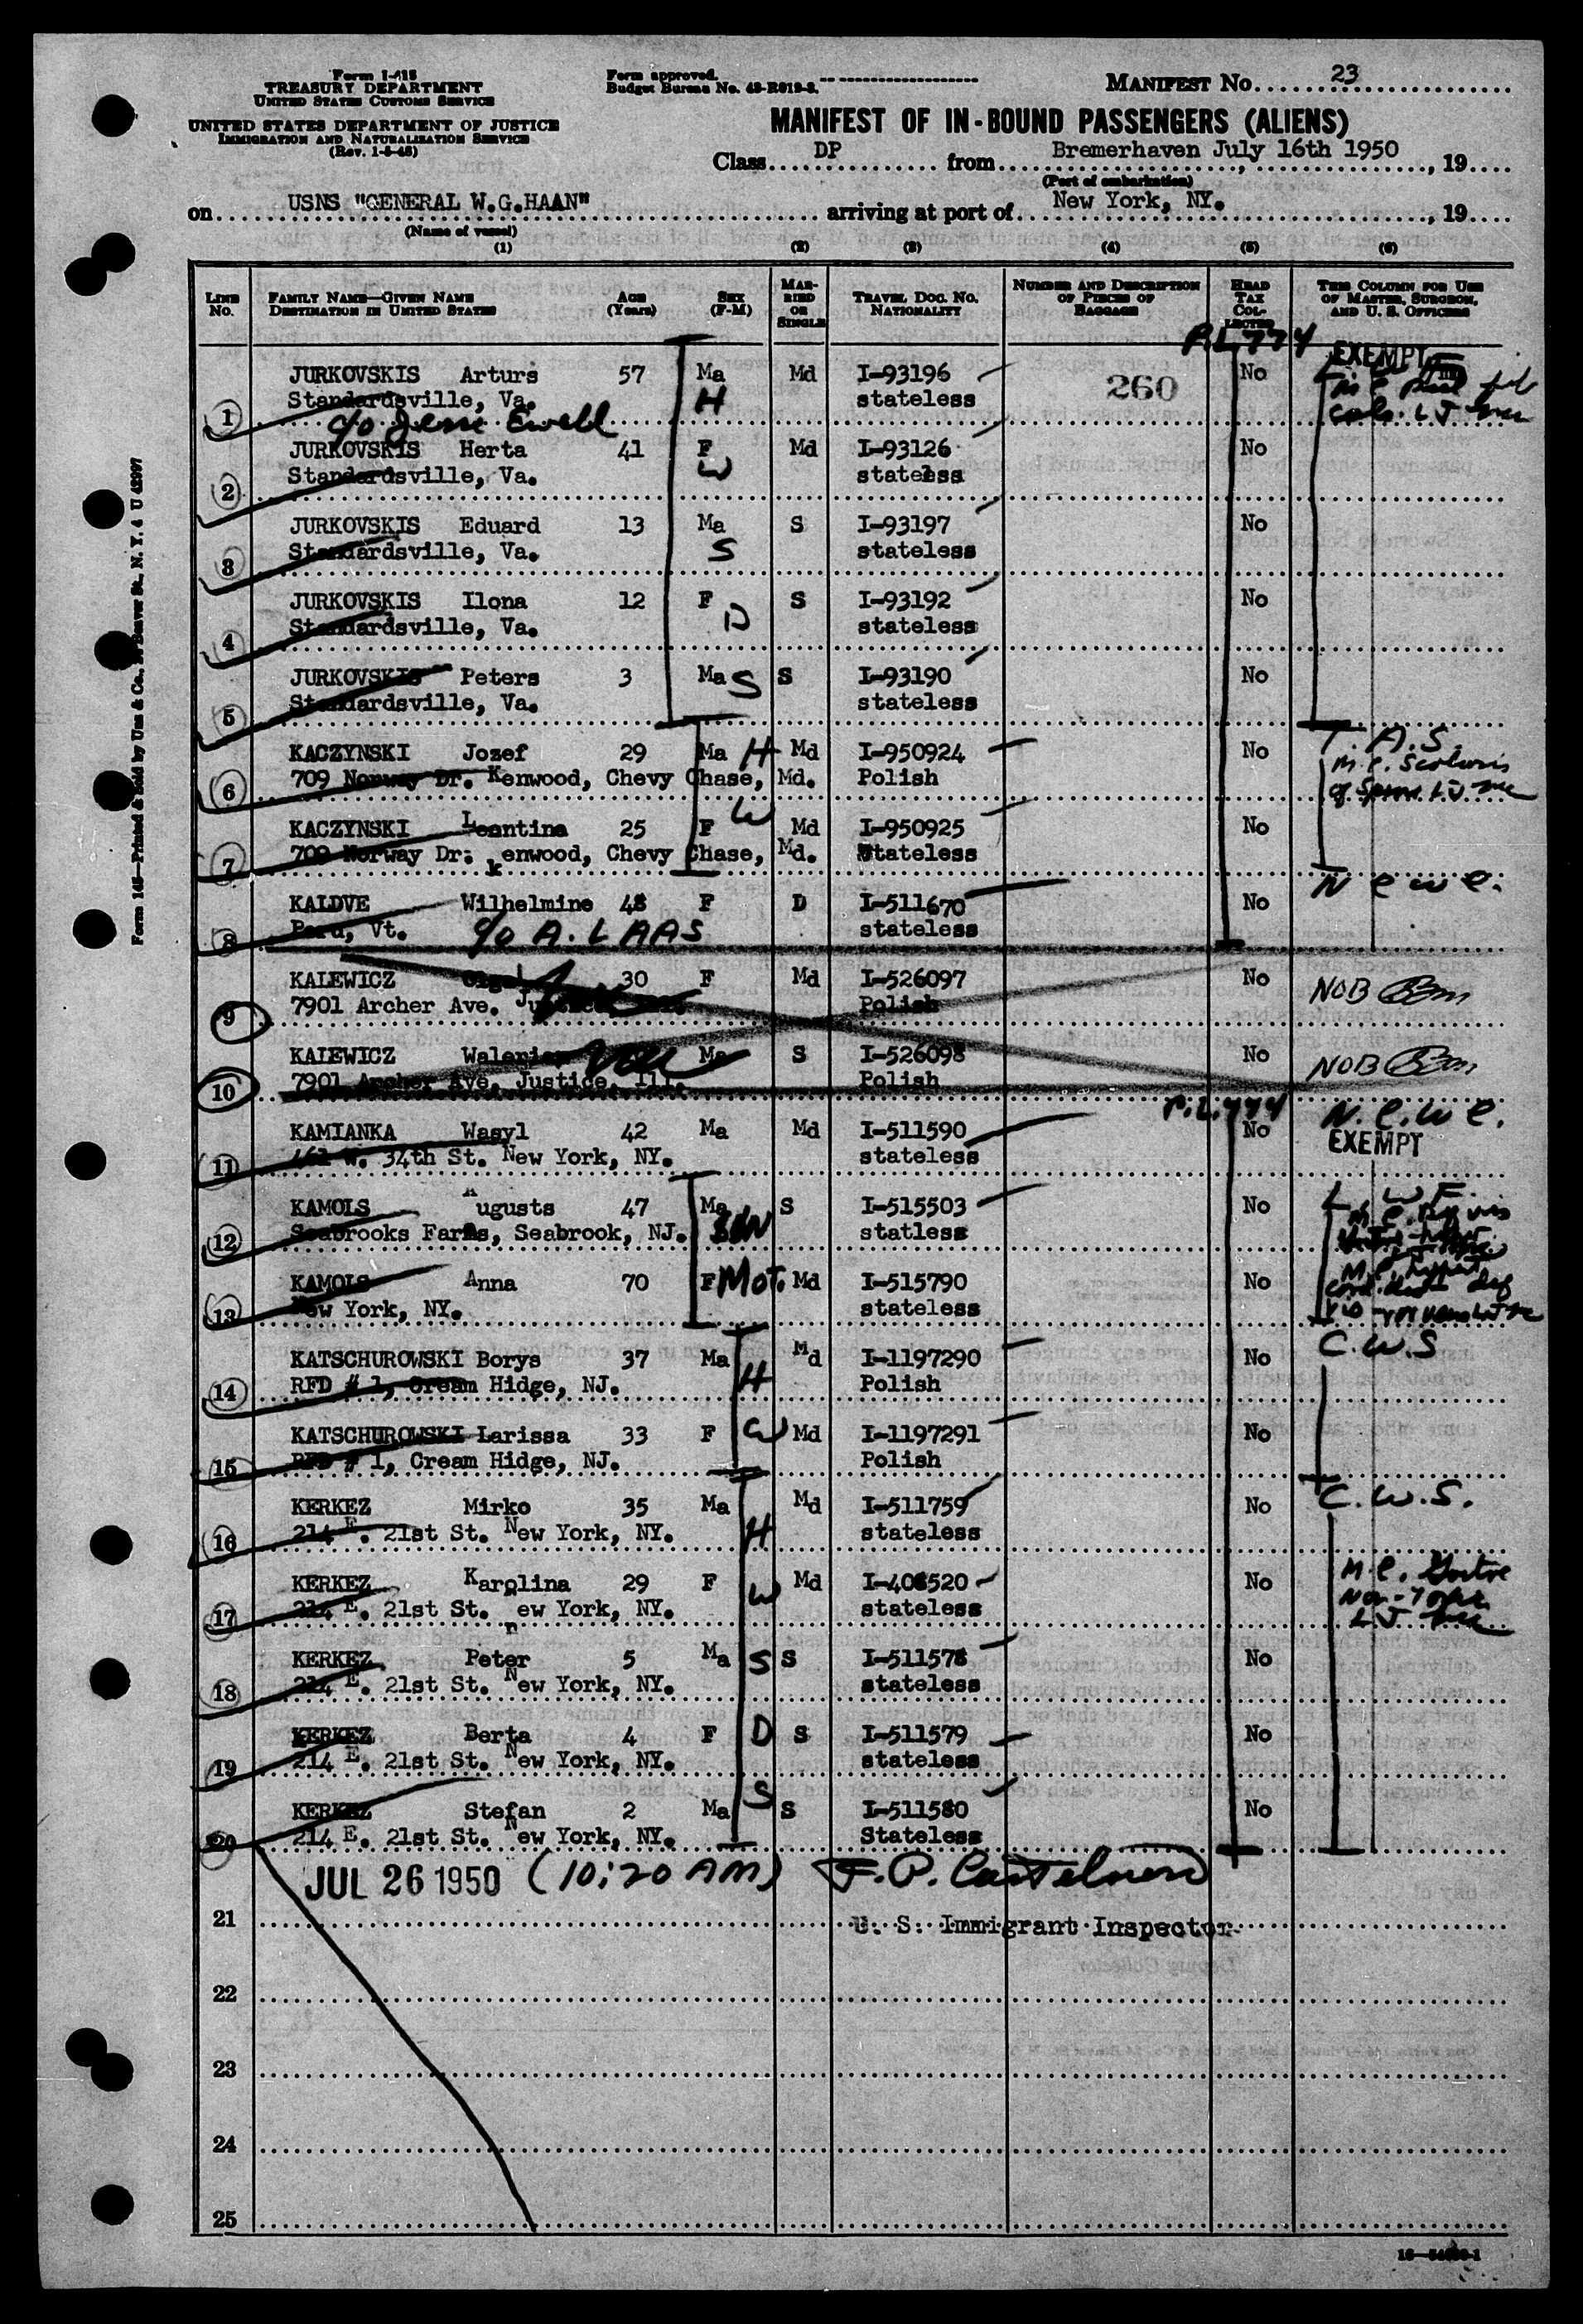 Form I-418
TREASURY DEPARTMENT
UNITED STATES CUSTOMS SERVICE
UNITED STATES DEPARTMENT OF JUSTICE
IMMIGRATION AND NATURALIZATION SERVICE
(Rev. 1-5-48)
Form approved.
Budget Bureau No. 43-R019-3.
MANIFEST No. 23
MANIFEST OF IN-BOUND PASSENGERS (ALIENS)
Class DP from Bremerhaven July 16th 1950, 19
(Port of embarkation)
on USNS "GENERAL W.G.HAAN" arriving at port of New York, NY., 19
(Name of vessel)
(1) (2) (3) (4) (5) (6)
LINE No. FAMILY NAME—GIVEN NAME DESTINATION IN UNITED STATES AGE (Years) SEX (F-M) MARRIED OR SINGLE TRAVEL DOC. No. NATIONALITY NUMBER AND DESCRIPTION OF PIECES OF BAGGAGE HEAD TAX COLLECTED THIS COLUMN FOR USE OF MASTER, SURGEON, AND U. S. OFFICERS
P.L. 774 EXEMPT
1 JURKOVSKIS Arturs 57 Ma Md I-93196 260 No
Standardsville, Va. H stateless
c/o Jesse Ewell
2 JURKOVSKIS Herta 41 F Md I-93126 No
Standardsville, Va. W stateless
3 JURKOVSKIS Eduard 13 Ma S I-93197 No
Standardsville, Va. S stateless
4 JURKOVSKIS Ilona 12 F S I-93192 No
Standardsville, Va. D stateless
5 JURKOVSKIS Peters 3 Ma S S I-93190 No
Standardsville, Va. stateless
6 KACZYNSKI Jozef 29 Ma H Md I-950924 No
709 Norway Dr. Kenwood, Chevy Chase, Md. Polish
7 KACZYNSKI Leontine 25 F W Md I-950925 No
709 Norway Dr. kenwood, Chevy Chase, Md. Stateless
8 KALDVE Wilhelmine 48 F D I-511670 No N C W C.
Peru, Vt. c/o A. LAAS stateless
9 KALEWICZ Olga 30 F Md I-526097 No NOB
7901 Archer Ave. Polish
10 KALEWICZ Md S I-526098 No NOB
7901 Archer Ave, Justice, Ill. Polish
P.L. 774 N.C.W.C.
11 KAMIANKA Wasyl 42 Ma Md I-511590 No EXEMPT
W. 34th St. New York, NY. stateless
12 KAMOLS Augusts 47 Ma S I-515503 No L. W F.
Seabrooks Farms, Seabrook, NJ. Son statless
13 KAMOLS Anna 70 F Mot. Md I-515790 No
New York, NY. stateless
14 KATSCHUROWSKI Borys 37 Ma Md I-1197290 No C.W.S
RFD # 1, Cream Hidge, NJ. H Polish
15 KATSCHUROWSKI Larissa 33 F W Md I-1197291 No
RFD # 1, Cream Hidge, NJ. Polish
16 KERKEZ Mirko 35 Ma Md I-511759 No C.W.S.
214 E. 21st St. New York, NY. H stateless
17 KERKEZ Karolina 29 F W Md No
214 E. 21st St. new York, NY. stateless
18 KERKEZ Peter 5 Ma S S I-511578 No
214 E. 21st St. New York, NY. stateless
19 KERKEZ Berta 4 F D S I-511579 No
214 E. 21st St. New York, NY. stateless
20 KERKEZ Stefan 2 Ma S S I-511580 No
214 E. 21st St. New York, NY. Stateless
JUL 26 1950 (10:20 AM)
21 U. S. Immigrant Inspector
22
23
24
25